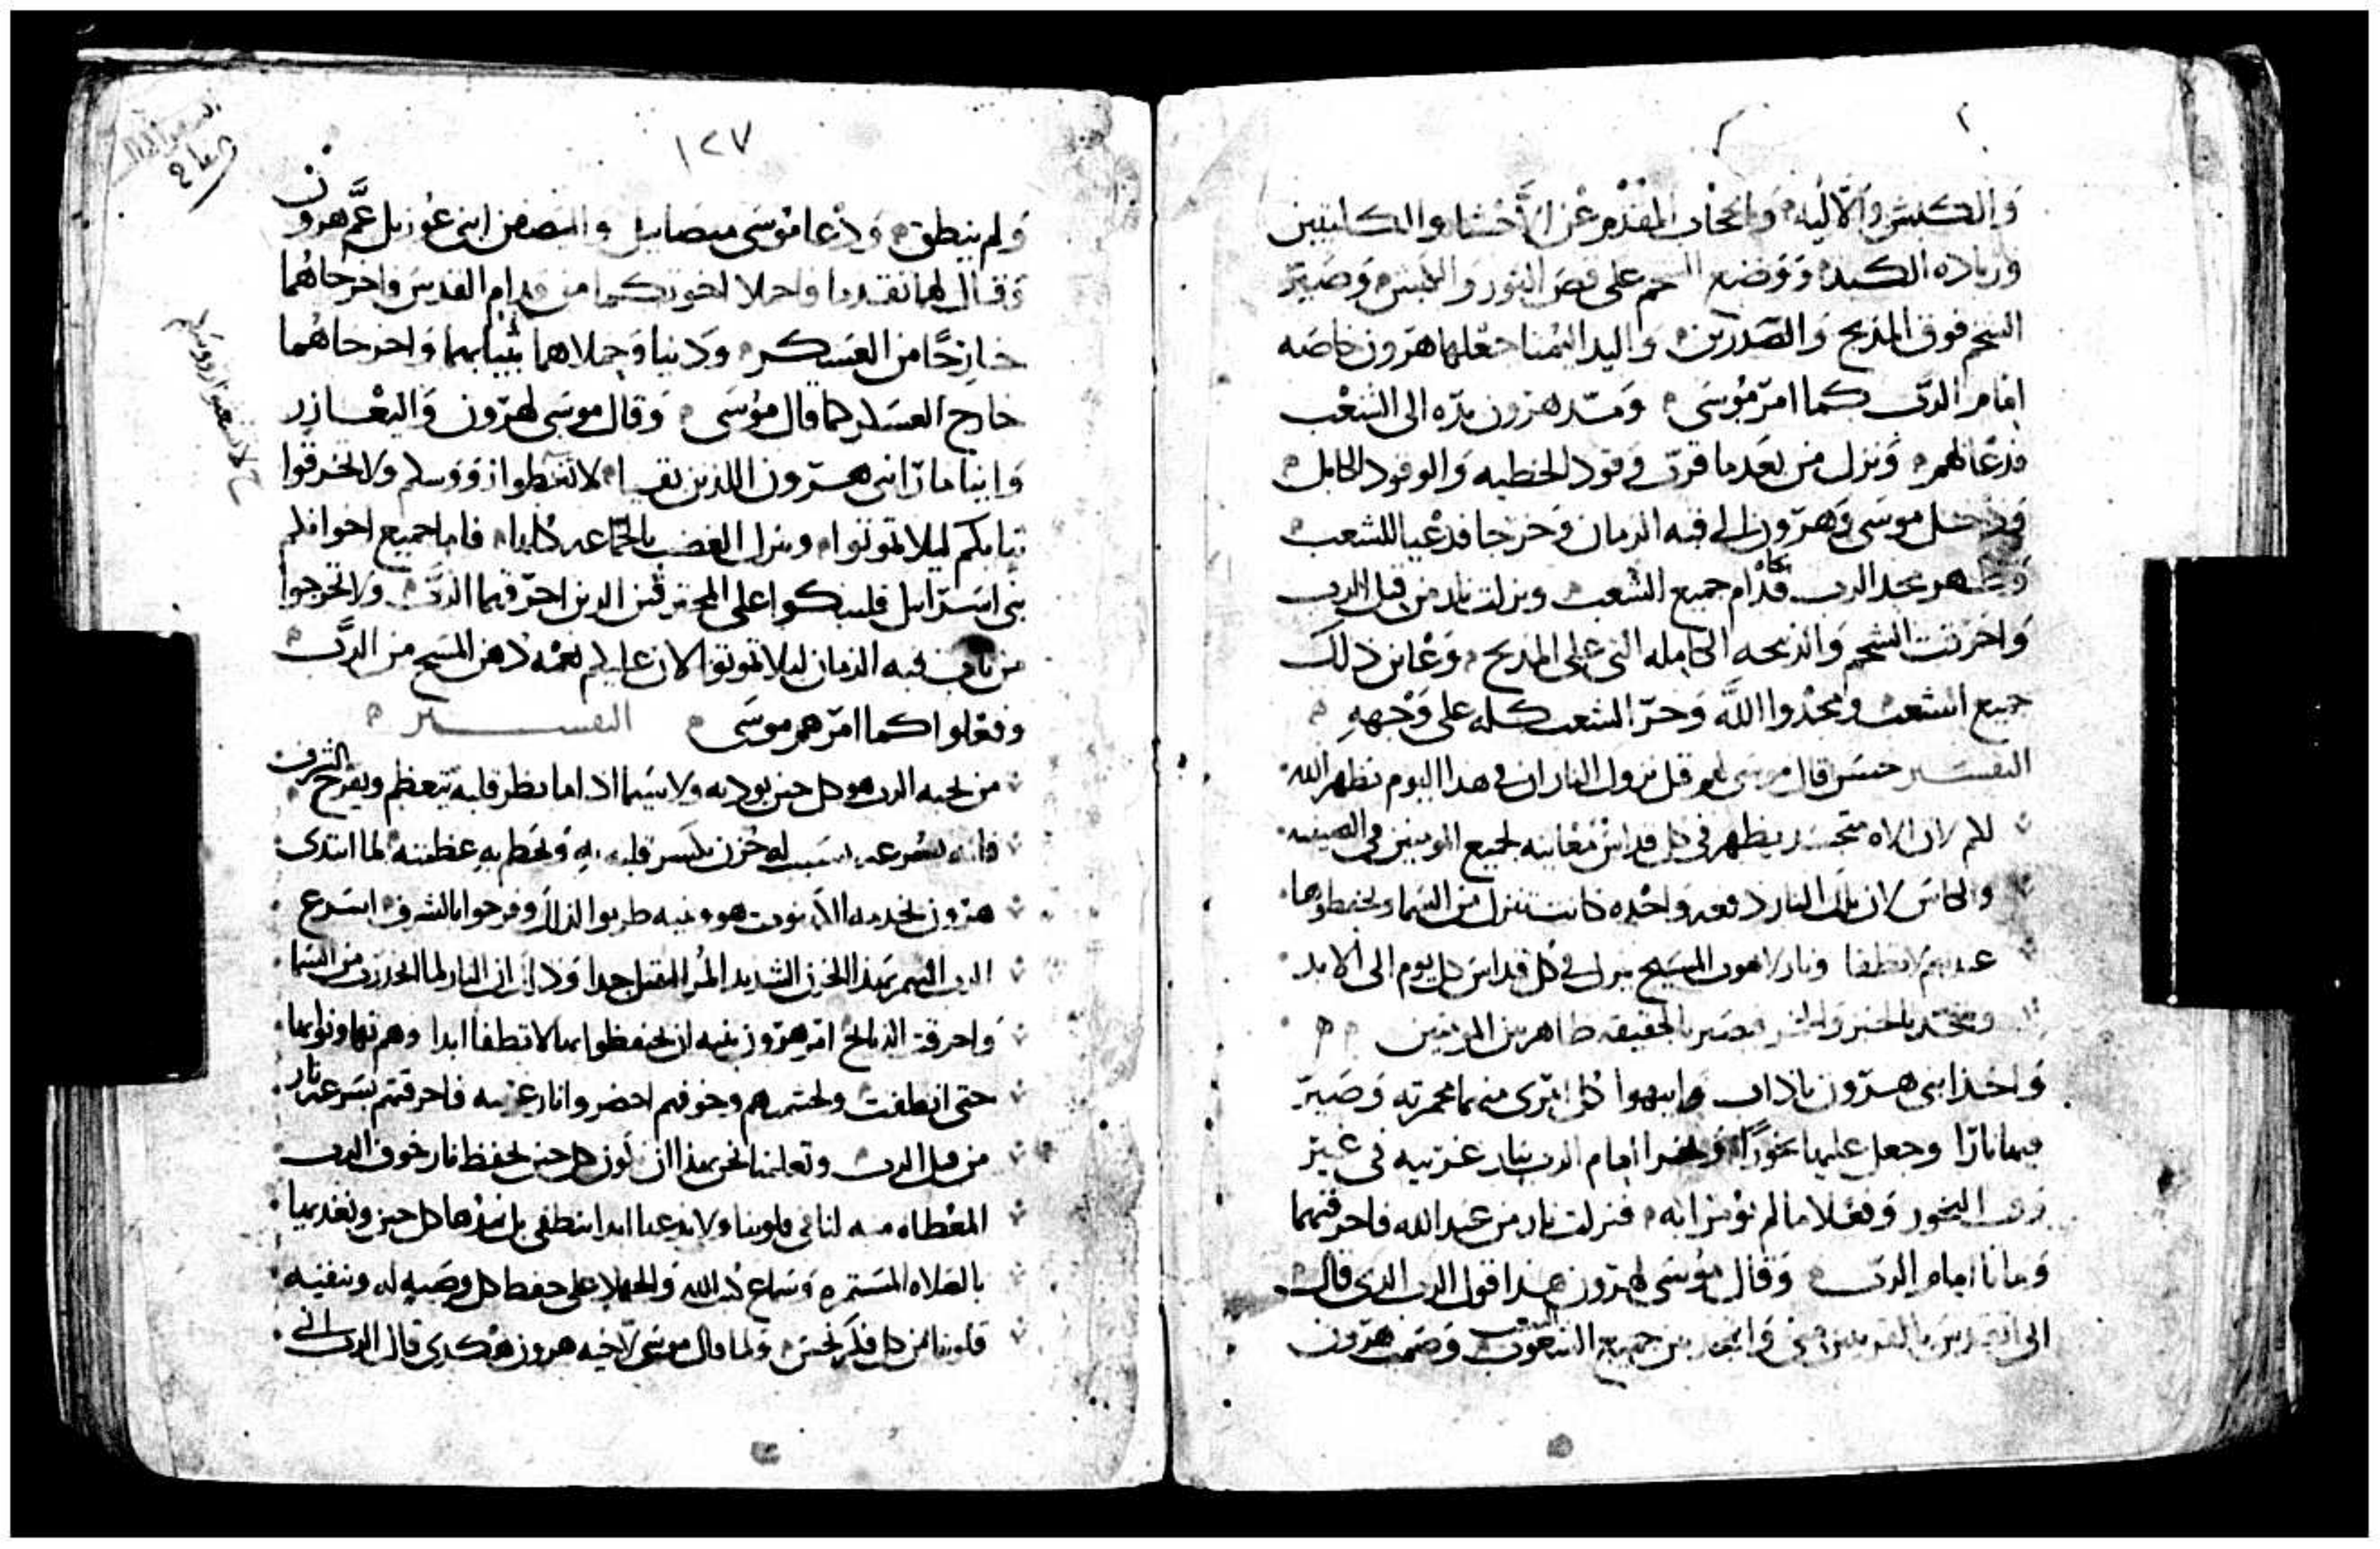 والكبش والاليه والحجاب المقدم عن الاحشا والكليتين
وزياده الكبد ووضع الشحم على قص الثور والكبش وصير
الشحم فوق المذبح والصدرين واليد اليمنا جعلها هرون خاصه
امام الرب كما امر موسى ومد هرون يده الى الشعب
فدعا لهم ونزل من بعد ما قرب وقود الخطيه والوقود الكامل
ودخل موسى وهرون الى قبه الزمان وخرجا فدعيا للشعب
وظهر مجد الرب قدام جميع الشعب ونزلت نار من قبل الرب
واحرقت الشحم والذبيحه الكامله التي على المذبح وعاين ذلك
جميع الشعب ومجدوا الله وخر الشعب كله على وجهه
التفسير حسن قال موسى قبل نزول النار ان في هذا اليوم يظهر الله
لكم لان الاه متجسد يظهر في كل قداس معاينه لجميع المومنين في الصينيه
والكاس لان تلك النار دفعه واحده كانت تنزل من السما ويحفظوها
عندهم لا تطفا ونار لاهوت المسيح ينزل في كل قداس كل يوم الى الابد
ويتحد بالخبز والخمر بالحقيقه ظاهر بين المومنين
واخذ ابني هرون ناداب وابيهوا كل امرى منهما مجمرته وصير
فيها نارا وجعل عليها بخورا امام الرب نار غريبه في غير
وقت البخور وفعلا ما لم يومرا به فنزلت نار من عند الله فاحرقتهما
وماتا امام الرب وقال موسى لهرون هذا قول الرب الذي قال
الى جميع الشعوب وصمت هرون
١٢٧
ولم ينطق ودعا موسى ميصاييل والصفن ابني عوزيل عم هرون
وقال لهما تقدما واحملا اخوتكما من قدام القدس واخرجاهما
خارجا من العسكر ودنيا وحملاهما بثيابهما واخرجاهما
خارج العسكر كما قال موسى وقال موسى لهرون واليعازر
وايتامار ابني هرون اللذين بقيا لا تغطوا رووسكم ولا تخرقوا
ثيابكم ليلا تموتوا وينزل الغضب بالجماعه كلها فاما جميع اخواتكم
بني اسراييل فليبكوا على المحترقين الذين احرقهما الرب ولا تخرجوا
من باب قبه الزمان ليلا تموتوا لان عليكم نعمه دهن المسيح من الرب
وفعلوا كما امرهم موسى التفسير
من يحبه الرب هو كل حين يودبه ولا سيما اذا ما نظر قلبه يتعظم ويفرح بالشرف
فانه بسرعه يسبب له حزن يكسر قلبه به ويحط به عظمته لما ابتدى
هرون بخدمه الكهنوت هو وبنيه طربوا لذلك وفرحوا بالشرف اسرع
الرب اليهم بهذا الحزن الشديد المر الثقيل جدا وذلك ان النار لما انحدرت من السما
واحرقت الذبايح امر هرون بنيه ان يحتفظوا بها لا تطفا ابدا وهم تهاونوا بها
حتى انطفت وخوفهم احضروا نار غريبه فاحرقتهم بسرعه نار
من قبل الرب وتعلمنا نحن بهذا ان نكون كل حين نحفظ نار خوف الرب
المعطاه منه لنا في قلوبنا ولا ندعها ابدا تنطفي بل نمدها كل حين ونغديها
بالصلاه المستمره وسماع كتب الله والجهاد على حفظ كل وصيه له وننقيه
قلوبنا من كل فكر نجس ولما قال موسى لاخيه هرون هكدى قال الرب اني